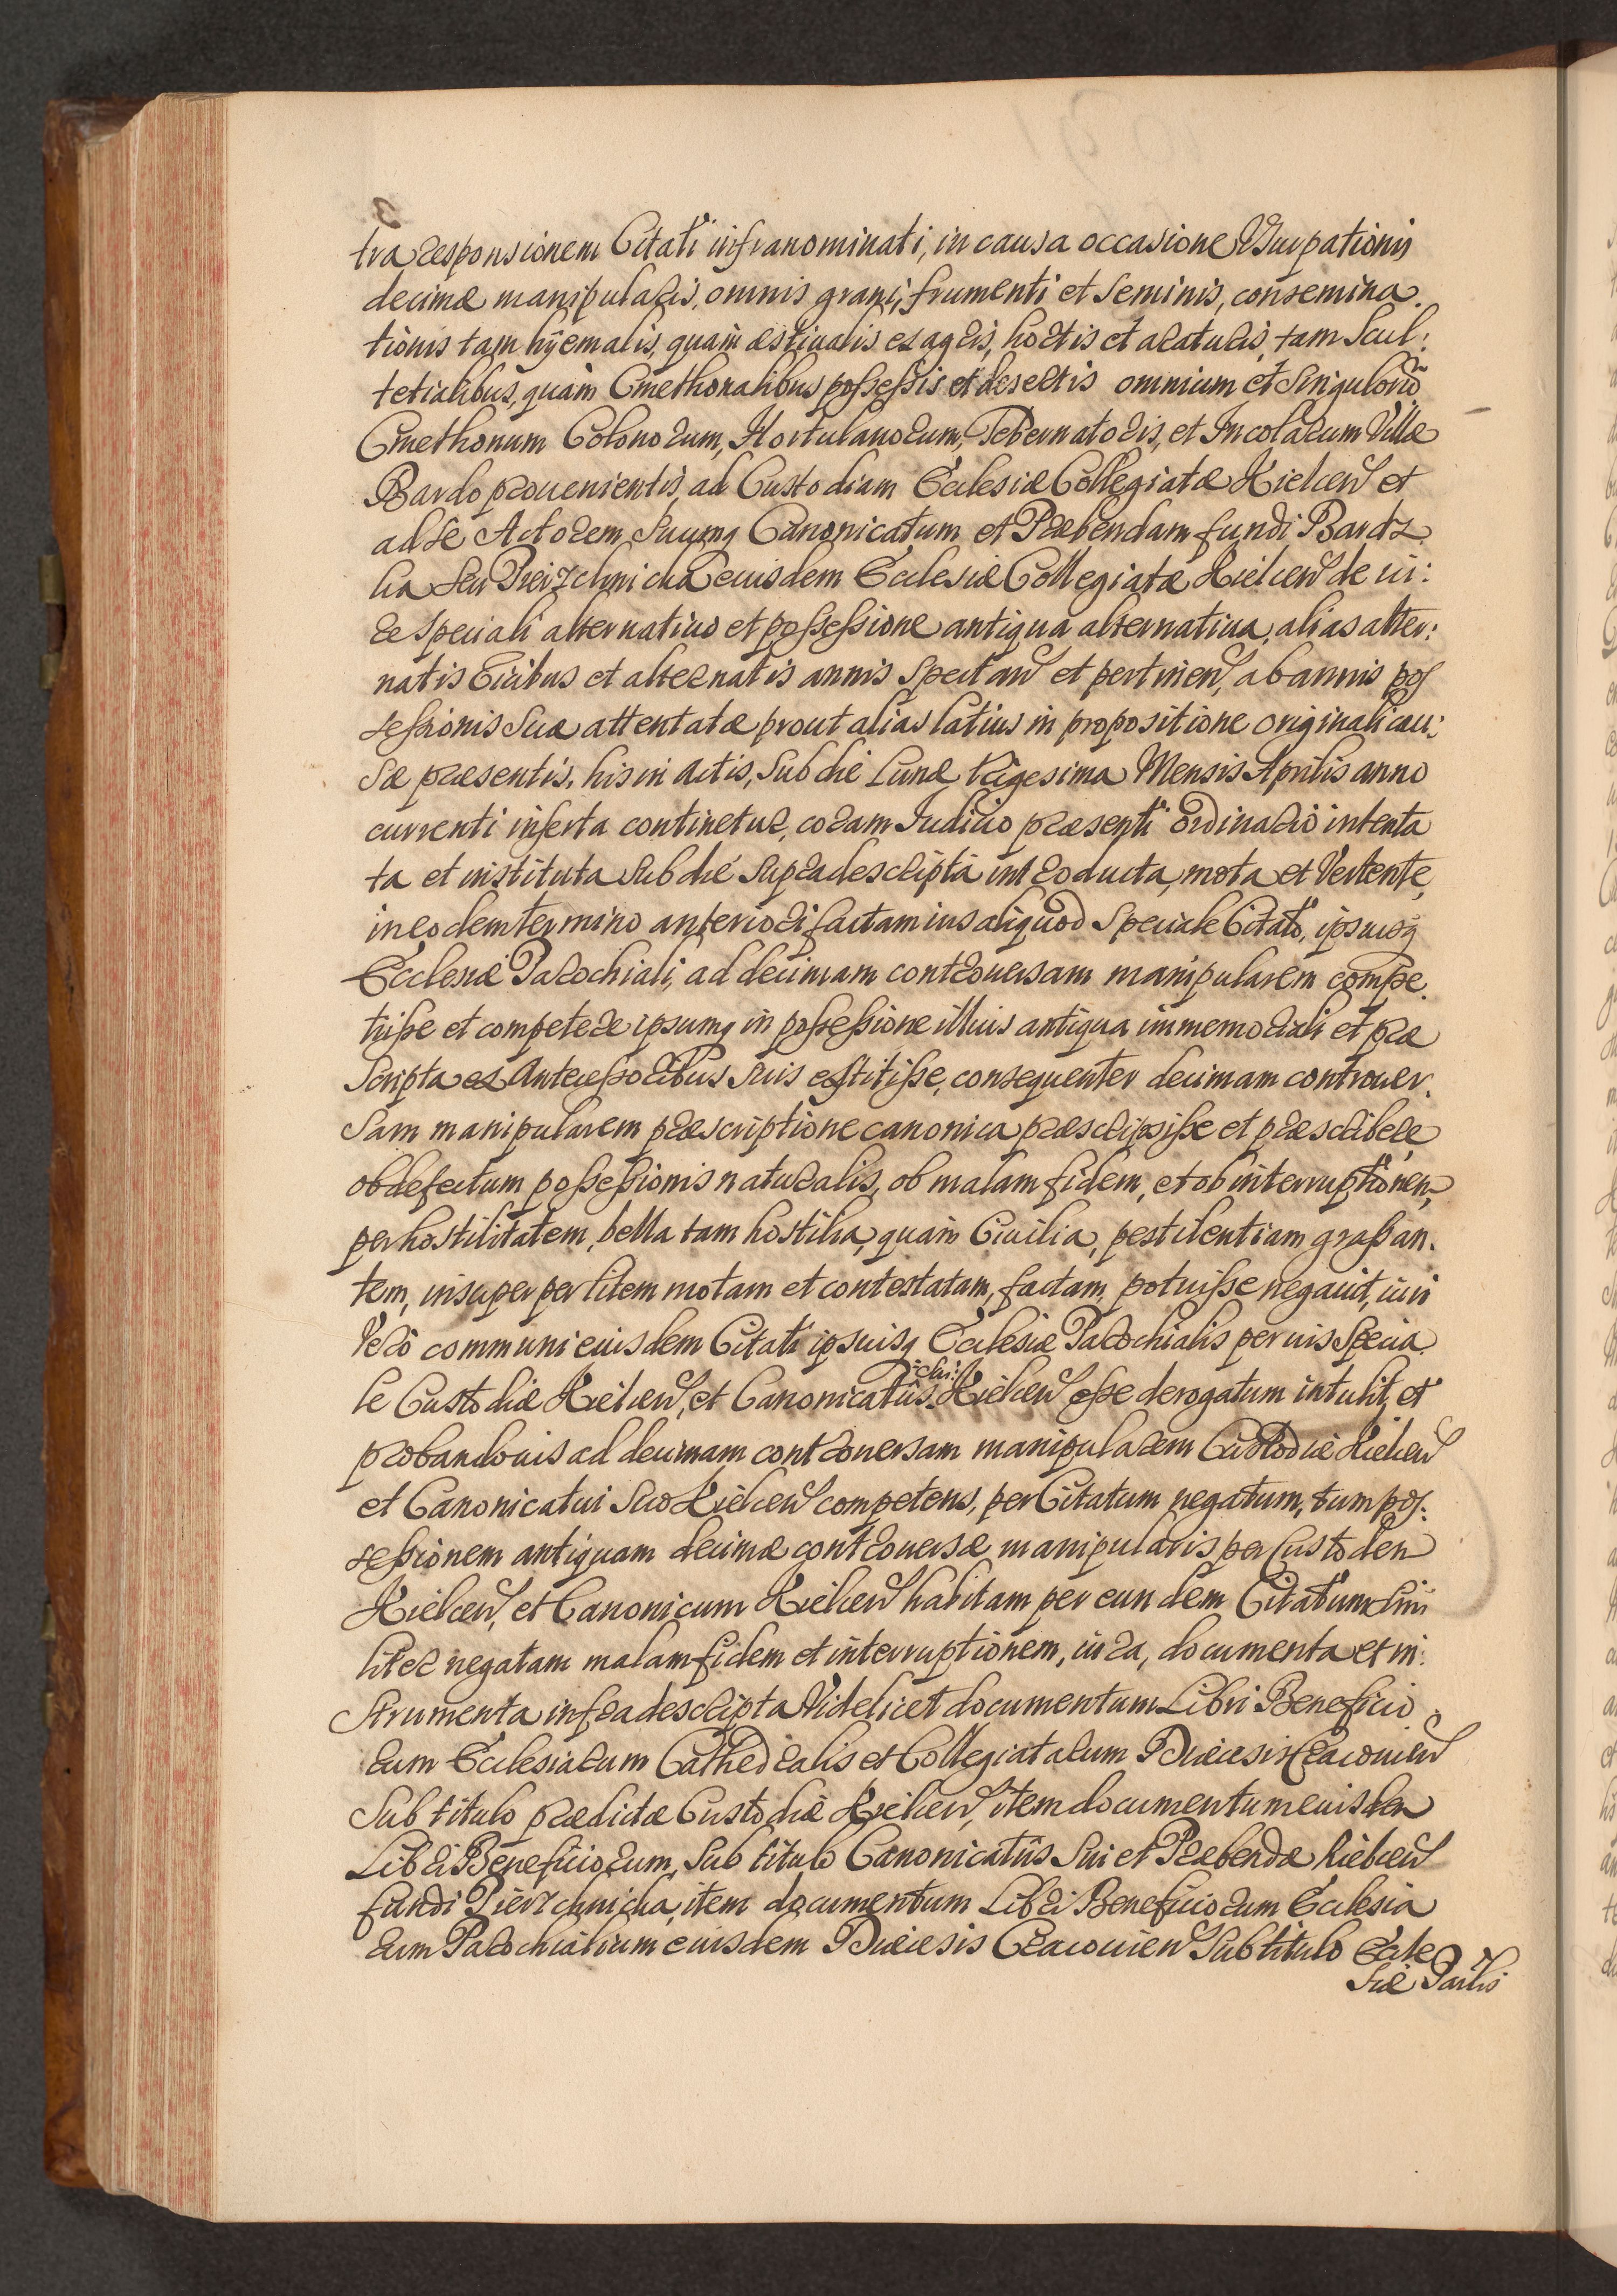 tra responsionem Citati infranominati, in causa occasione Vsurpationis
decimæ manipularis, omnis grani, frumenti et Seminis, consemina.
tionis tam hÿemalis, quam æstiualis ex agris, hortis et araturis, tam Scul:
tetialibus, quàm Cmethonalibus possessis et desertis omnium et Singuloru͂
Cmethonum Colonorum, Hortulanorum, Tebernatoris, et Incolarum Villæ
Bardo prouenientis, ad Custodiam Ecclesiæ Collegiatæ Kielcen et
ad se Actorem, Suumq Canonicatum et Præbendam fundi Bardz
kia Seu Pierzchnicka eiusdem Ecclesiæ Collegiatæ Kielcen de iu:
re speciali alternatiuo et possessione antiqua alternatiua, alias alter:
natis Vicibus et alternatis annis Spectan et pertinen, ab annis pos
sessionis Suæ attentatæ prout alias latius in propositione originali cau:
sæ præsentis, his in Actis, Sub die Lunæ trigesima Mensis Aprilis anno
currenti inserta continetur, coram Iudicio præsenti ordinario intenta
ta et instituta Sub die Supradescripta introducta, mota et Vertente,
in eodem termino anteriori factam ius aliquod Speciale Citato, ipsiusq
Ecclesiæ Parochiali, ad decimam controuersam manipularem compe.
tiisse et competere ipsumq in possessione illius antiqua immemoriali et præ
Scripta ex Antecessoribus Suis extitisse, consequenter decimam controuer.
Sam manipularem præscriptione canonica præscripsisse et præscribere
ob defectum possessionis naturalis, ob malam fidem, et ob interruptionem,
per hostilitatem, bella tam hostilia, quàm Ciuilia, pestilentiam grassan.
tem, insuper per litem motam et contestatam, factam, potuisse negauit, iuri
Vero communi eiusdem Citati ipsuisq Ecclesiæ Parochialis per ius Specia
le Custodiæ Kielcen, et Canonicatûs :chi: Kielcen esse derogatum intulit, et
probando ius ad decimam controuersam manipularem Custodiæ Kielcen
et Canonicatui Suo Kielcen competens, per Citatum negatum, tum pos:
sessionem antiquam decimæ controuersæ manipularis per Custodem
Kielcen, et Canonicum Kielcen habitam per eundem Citatum Simi
liter negatam malam fidem et interruptionem, iura, documenta et in:
Strumenta infradescripta Videlicet documentum Libri Beneficio
rum Ecclesiarum Cathedralis et Collegiatarum Diæcesis Cracouien
Sub titulo prædictæ Custodiæ Kielcen, item documentum eiusdem
Libri Beneficiorum, Sub titulo Canonicatûs Sui et Præbendæ Kielcen
fundi Pierzchnicka, item documentum Libri Beneficiorum Ecclesia
rum Parochialium eiusdem Diæcesis Cracouien Sub titulo Eccle
siæ Parlis